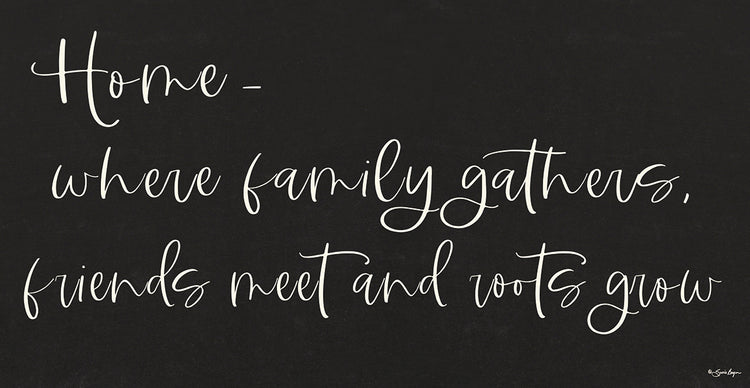 Home -
where family gathers,
friends meet and roots grow